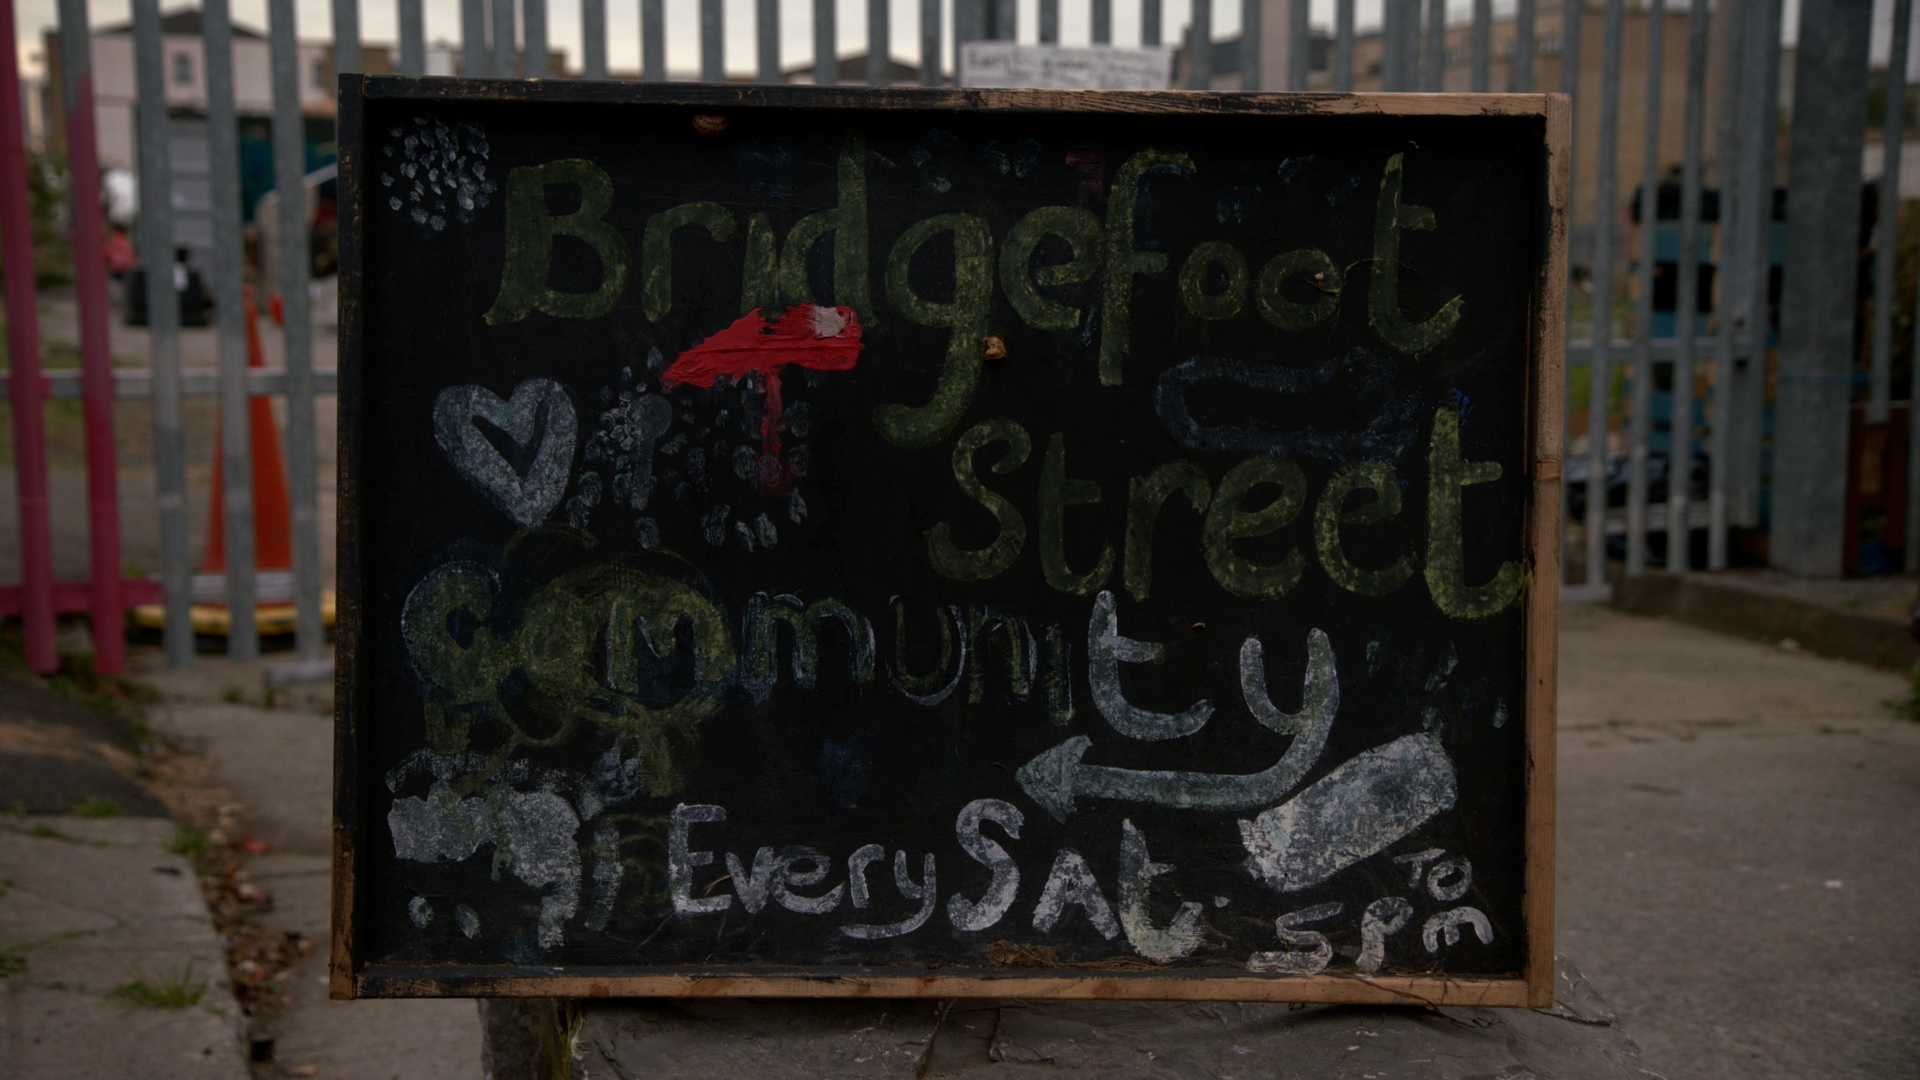 Bridgefoot
Street
Community
Every SAt.
TO
5pm